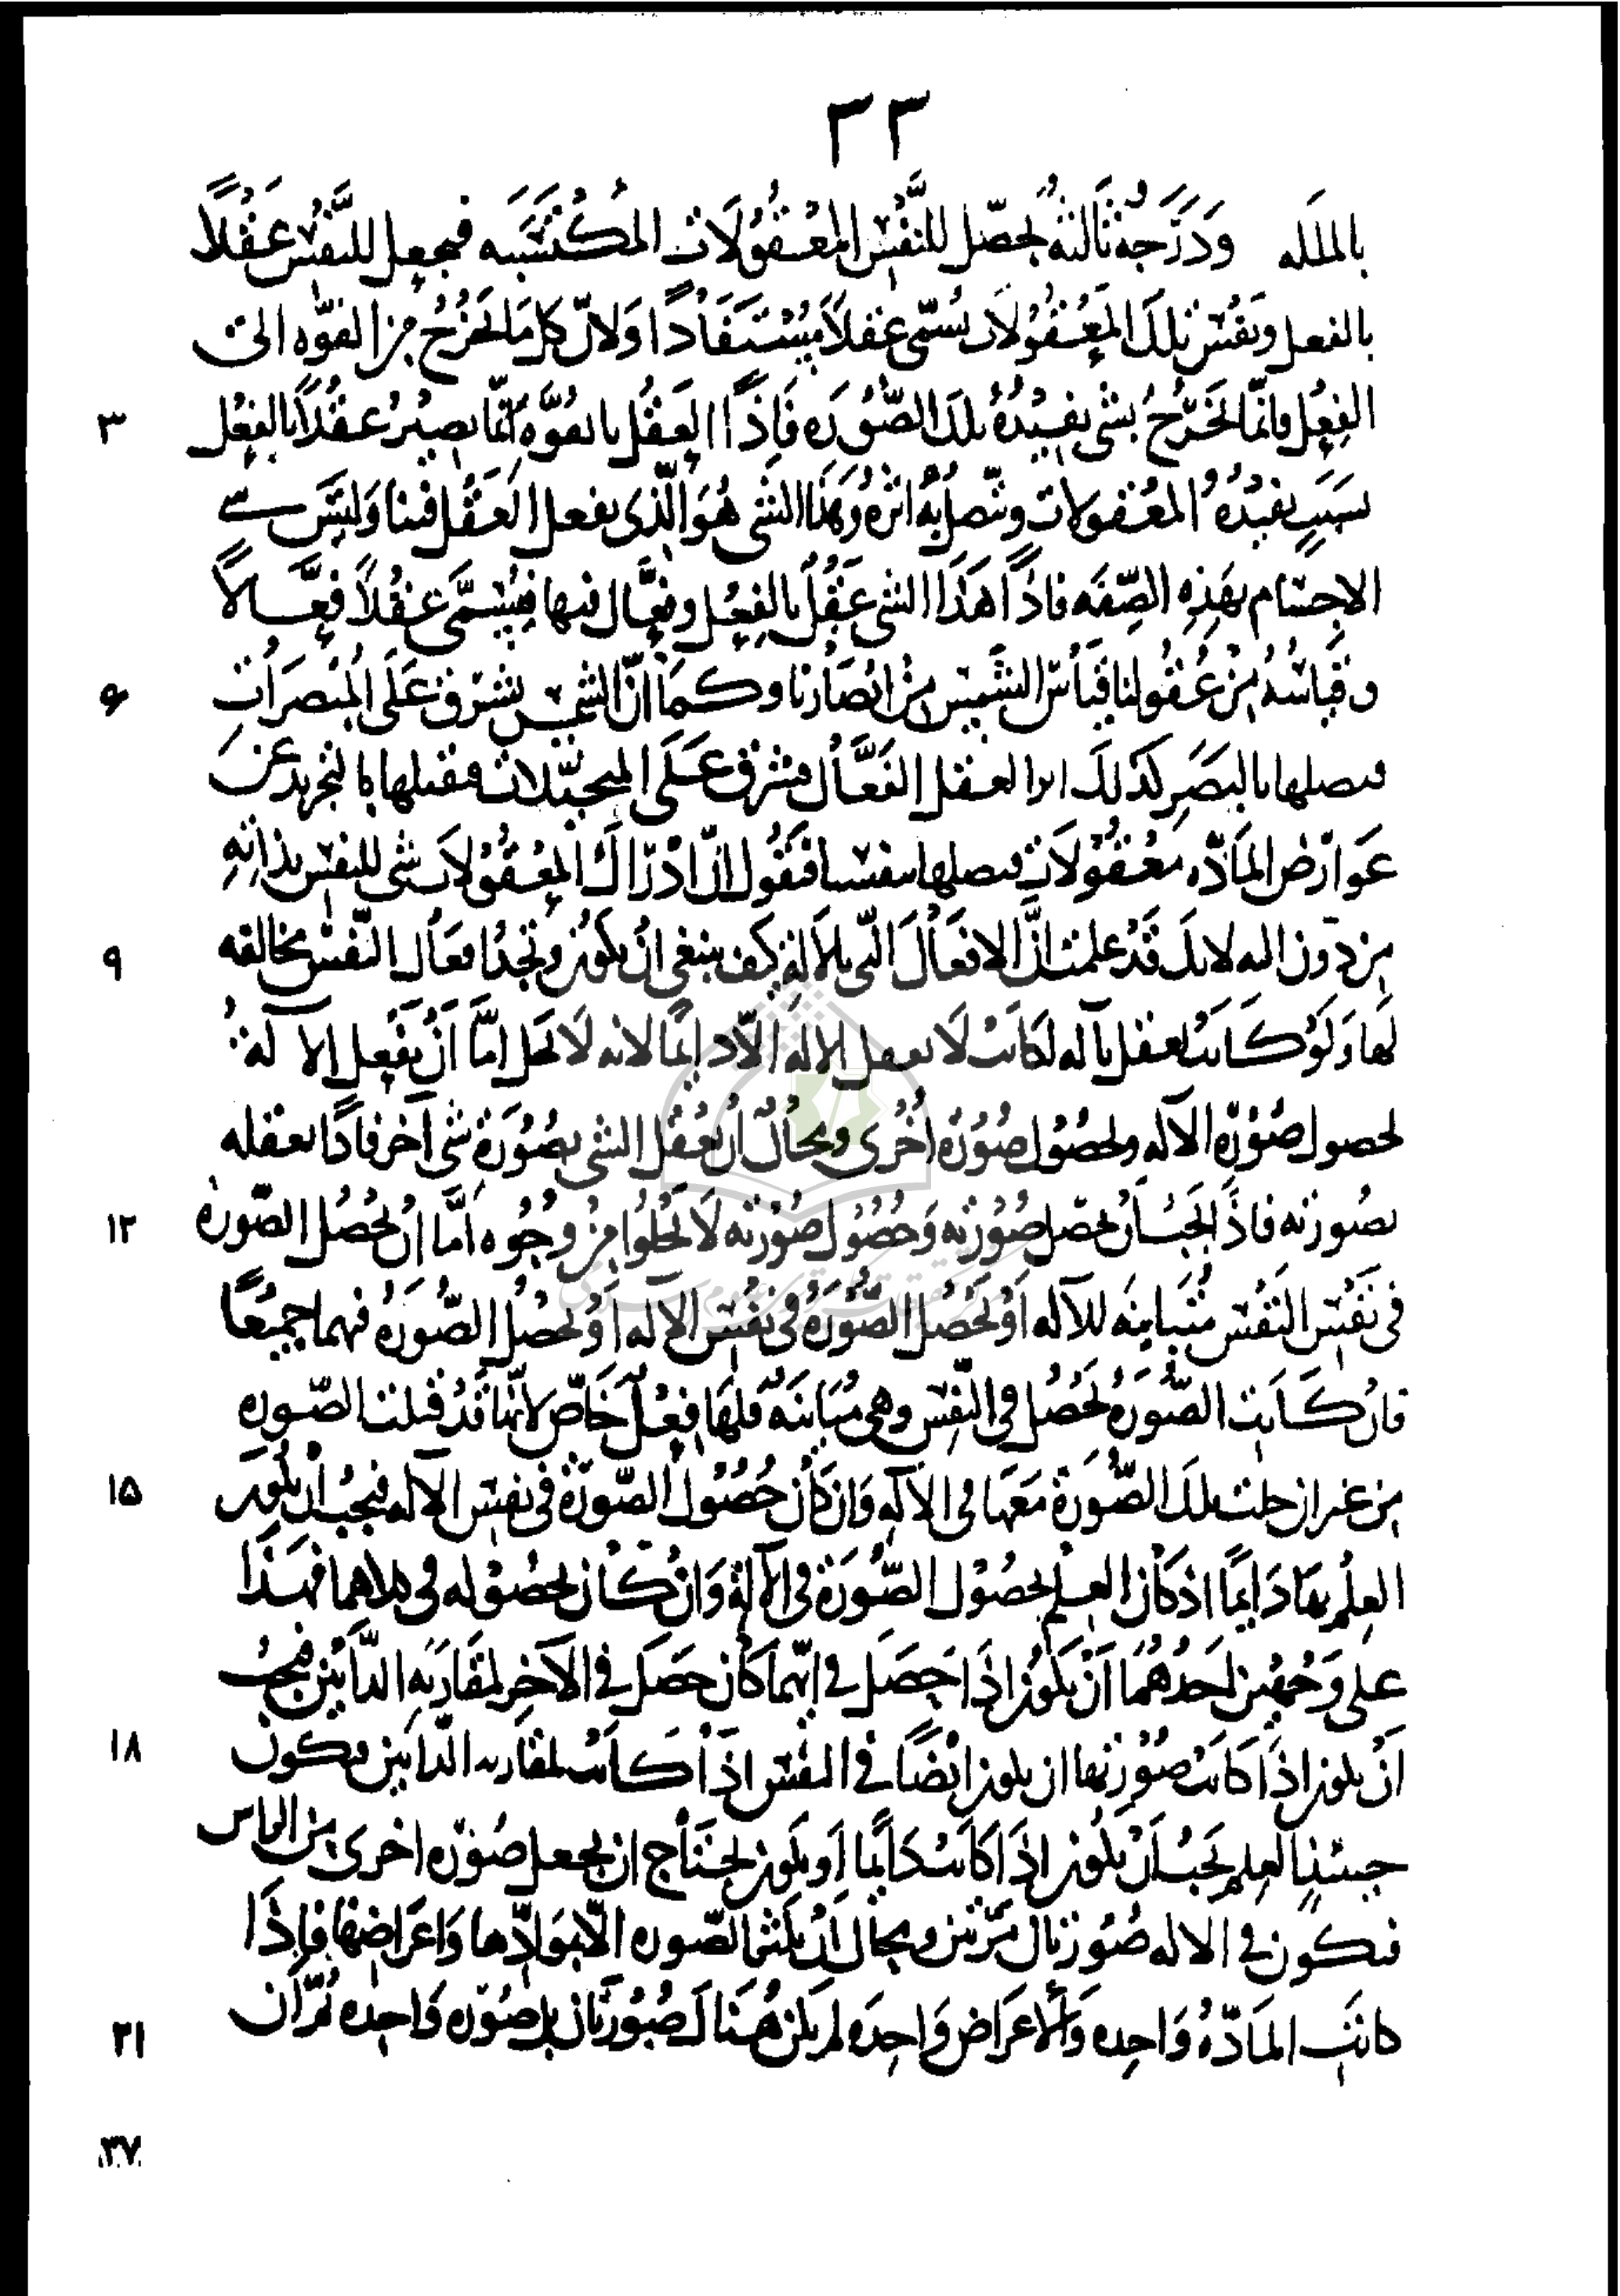 ٣٣
بالملكه ودرجه ثالثه تحصّل للنفس المعقولات المكتسبه فيجعل للنفس عقلاً
بالفعل ونفس تلك المعقولات تسمّى عقلاً مستفاداً ولانّ كل ما يخرج من القوّه الى
٣ الفعل فانّما يخرج بشى يفيده تلك الصّوره فاذاً العقل بالقوّه انّما يصير عقلاً بالفعل
بسبب يفيده المعقولات ويتّصل به اثره وهذا الشى هو الّذى يفعل العقل فينا وليس شى
الاجسام بهذه الصّفه فاذاً هذا الشى عقل بالفعل وفعّال فيها فيسمّى عقلاً فعّالاً
۶ وقياسه من عقولنا قياس الشمس من ابصارنا وكما انّ الشمس تشرق على المبصرات
فيصلها بالبصر كذلك اثر العقل الفعّال يشرق على المتخيّلات فيقبلها بالتجريد عن
عوارض المادّه معقولات فيصلها بنفسنا فنقول انّ ادراك المعقولات شى للنفس بذاته
٩ من دون اله لانك قد علمت انّ الافعال الّتى بالآلة كيف ينبغى ان يكون ونجد افعال النّفس مخالفه
لها ولو كانت تعقل بآله لكانت لا تعقل الاله الّا دايماً لانه لا يخل امّا ان يعقل الآله
لحصول صورة الآله ولحصول صورة اخرى ومحال ان يعقل الشى بصورة شى آخر فاذاً تعقله
١٢ بصورته فاذاً يجب ان تحصل صورته وحصول صورته لا يخلوا من وجوه امّا ان تحصل الصّورة
فى نفس النفس متباينه للآله او تحصل الصّورة فى نفس الآله او تحصل الصّوره فيهما جميعاً
فان كانت الصّوره تحصل فى النّفس وهى مباينه فلها فعل خاصّ لانّها قد قبلت الصّوره
١۵ من غير ان حلت تلك الصّورة معها فى الآله وان كان حصول الصّورة فى نفس الآله فيجب ان يكون
العلم بها دايماً اذ كان العلم لحصول الصّورة فى الآلة وان كان لحصوله فى كلاهما فهذا
على وجهين احدهما ان يكون اذا حصل فى ايّهما كان حصل فى الآخر لمقاربه الذّاتين فيجب
١٨ ان يكون اذا كانت صورتها ان يكون ايضاً فى النفس اذا كانت لمقاربه الذّاتين فيكون
حينئذٍ العلم يجب ان يكون اذا كانت دايماً او يكون يحتاج ان يجعل صورة اخرى من الراس
فيكون فى الاله صورتان مرّتين ومحال ان يكثر الصّوره الّا بموادّها واعراضها فاذا
٢١ كانت المادّه واحده والاعراض واحده لم يكن هناك صورتان بل صورة واحده ثمّ ان
٣٧